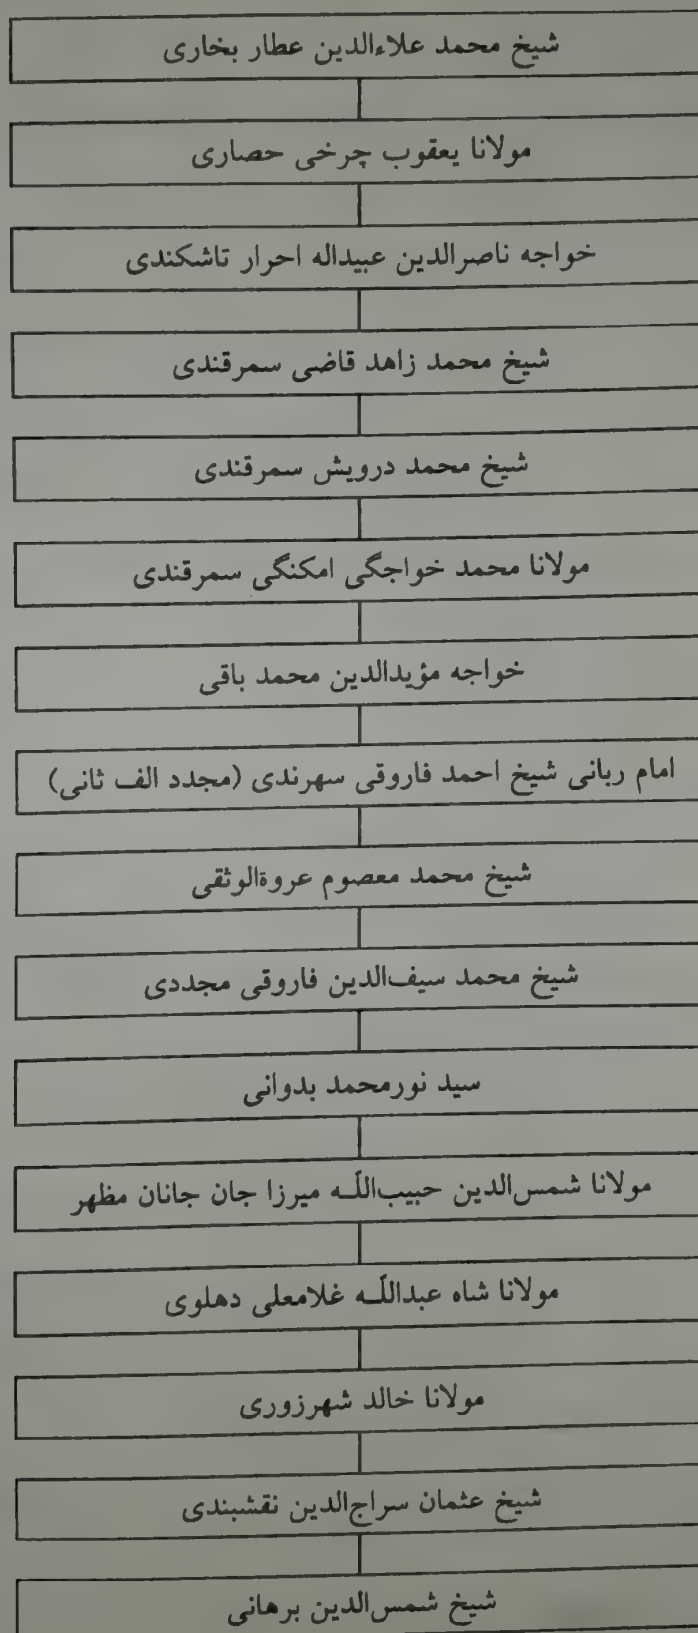 شیخ محمد علاءالدین عطار بخاری
مولانا یعقوب چرخی حصاری
خواجه ناصرالدین عبیداله احرار تاشکندی
شیخ محمد زاهد قاضی سمرقندی
شیخ محمد درویش سمرقندی
مولانا محمد خواجگی امکنگی سمرقندی
خواجه مؤیدالدین محمد باقی
امام ربانی شیخ احمد فاروقی سهرندی (مجدد الف ثانی)
شیخ محمد معصوم عروةالوثقی
شیخ محمد سیف‌الدین فاروقی مجددی
سید نورمحمد بدوانی
مولانا شمس‌الدین حبیب‌اللّـه میرزا جان جانان مظهر
مولانا شاه عبداللّـه غلامعلی دهلوی
مولانا خالد شهرزوری
شیخ عثمان سراج‌الدین نقشبندی
شیخ شمس‌الدین برهانی